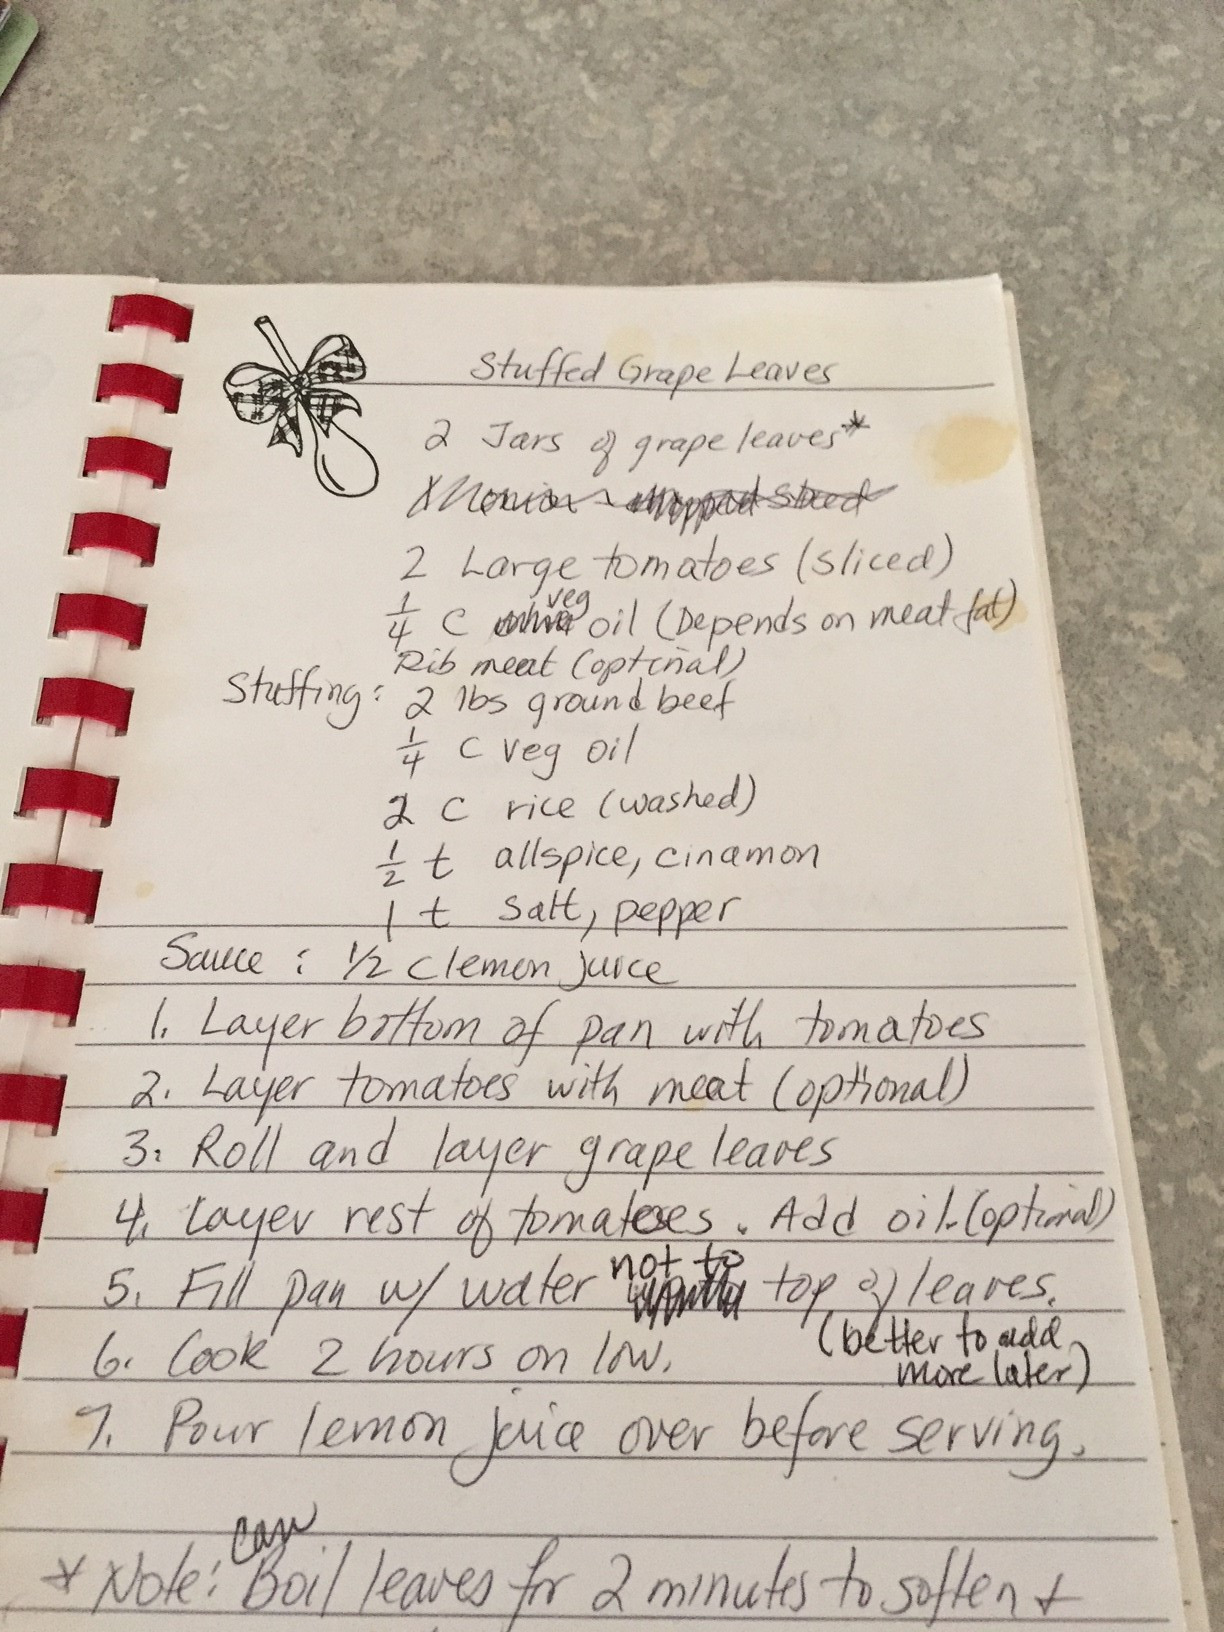 Stuffed Grape Leaves
2 Jars of grape leaves*
2 Large tomatoes (sliced)
1/4 C veg oil (Depends on meat fat)
Rib meat (optional)
Stuffing: 2 lbs ground beef
1/4 c veg oil
2 c rice (washed)
1/2 t allspice, cinamon
1 t salt, pepper
Sauce: 1/2 c lemon juice
1. Layer bottom of pan with tomatoes
2. Layer tomatoes with meat (optional)
3. Roll and layer grape leaves
4. Layer rest of tomatoes. Add oil. (optional)
5. Fill pan w/ water not to top of leaves.
(better to add more later)
6. Cook 2 hours on low.
7. Pour lemon juice over before serving.
* Note: Boil leaves for 2 minutes to soften +